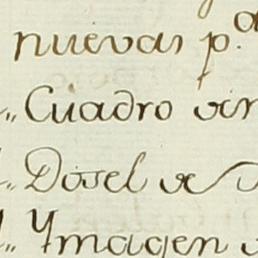 nuevas p.ª
Cuadro
Dosel de
Ymagen